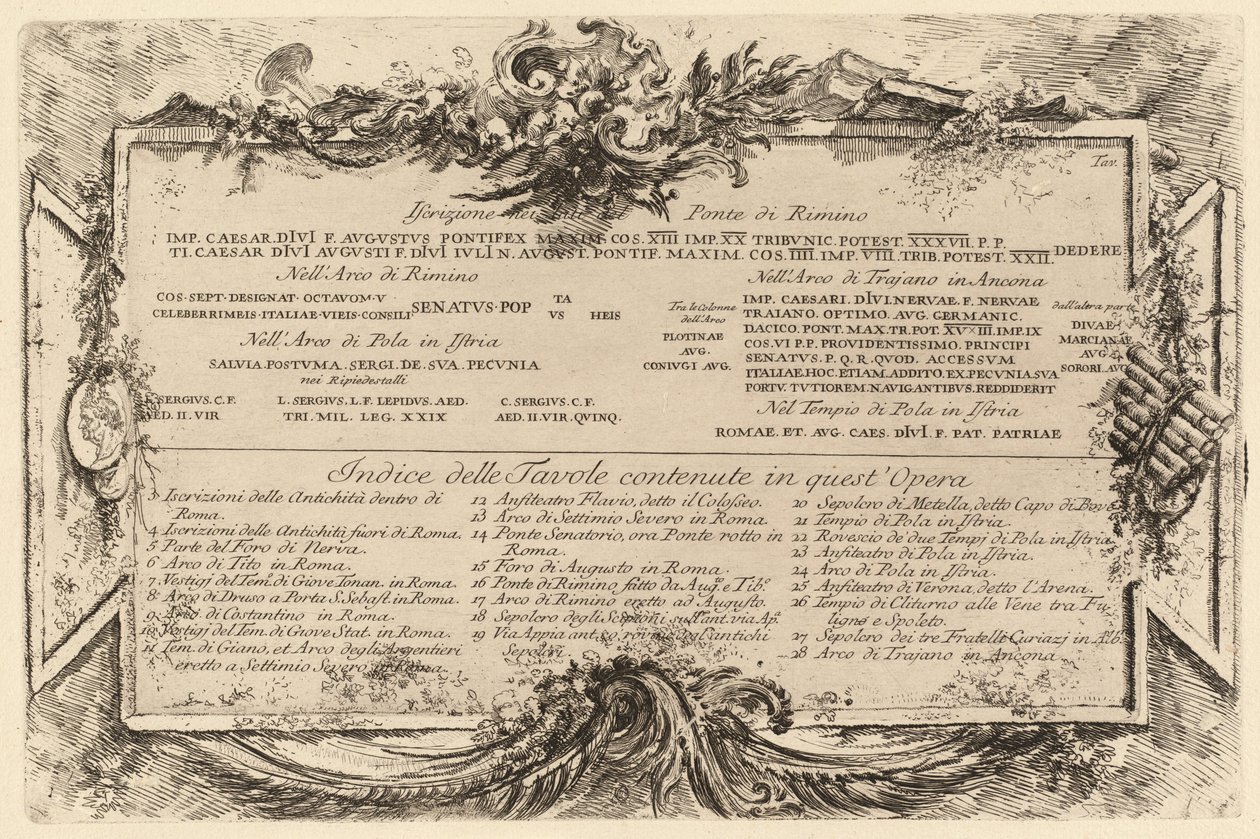 Tav.
Iscrizione nei lati del Ponte di Rimino
IMP. CAESAR. DIVI F. AVGVSTVS PONTIFEX MAXIM. COS. XIII IMP. XX TRIBVNIC. POTEST. XXXVII. P. P.
TI. CAESAR DIVI AVGVSTI F. DIVI IVLI N. AVGVST. PONTIF. MAXIM. COS. IIII. IMP. VIII. TRIB. POTEST. XXII. DEDERE
Nell'Arco di Rimino
COS·SEPT·DESIGNAT·OCTAVOM·V
CELEBERRIMEIS·ITALIAE·VIEIS·CONSILI SENATVS·POP TA
VS HEIS
Nell'Arco di Pola in Istria
SALVIA.POSTVMA.SERGI.DE.SVA.PECVNIA
nei Ripiedestalli
L. SERGIVS. C. F. L. SERGIVS. L. F. LEPIDVS. AED. C. SERGIVS. C. F.
AED. II. VIR TRI. MIL. LEG. XXIX AED. II. VIR. QVINQ.
Nell'Arco di Trajano in Ancona
Tra le Colonne
dell'Arco
PLOTINAE
AVG.
CONIVGI AVG.
IMP. CAESARI. DIVI. NERVAE. F. NERVAE
TRAIANO. OPTIMO. AVG. GERMANIC.
DACICO. PONT. MAX. TR. POT. XV×III. IMP. IX
COS. VI P. P. PROVIDENTISSIMO. PRINCIPI
SENATVS. P. Q. R. QVOD. ACCESSVM
ITALIAE. HOC. ETIAM. ADDITO. EX. PECVNIA. SVA
PORTV. TVTIOREM. NAVIGANTIBVS. REDDIDERIT
dall'altra parte
DIVAE
MARCIANAE
AVG.
SORORI. AVG
Nel Tempio di Pola in Istria
ROMAE. ET. AVG. CAES. DIVI. F. PAT. PATRIAE
Indice delle Tavole contenute in quest'Opera
3 Iscrizioni delle Antichità dentro di
Roma.
4 Iscrizioni delle Antichità fuori di Roma.
5 Parte del Foro di Nerva.
6 Arco di Tito in Roma.
7. Vestigj del Tem.º di Giove Tonan. in Roma.
8 Arco di Druso a Porta S. Sebast. in Roma.
9. Arco di Costantino in Roma.
10 Vestigj del Tem. di Giove Stat. in Roma.
11 Tem. di Giano, et Arco degli Argentieri
eretto a Settimio Severo in Roma.
12 Anfiteatro Flavio, detto il Colosseo.
13 Arco di Settimio Severo in Roma.
14 Ponte Senatorio, ora Ponte rotto in
Roma.
15 Foro di Augusto in Roma.
16 Ponte di Rimino fatto da Aug.º e Tib.º
17 Arco di Rimino eretto ad Augusto.
18 Sepolcro degli Scipioni sull'ant. via Ap.ª
19 Via Appia degl'antichi
Sepolcri
20 Sepolcro di Metella, detto Capo di Bove
21 Tempio di Pola in Istria.
22 Rovescio de' due Tempj di Pola in Istria
23 Anfiteatro di Pola in Istria.
24 Arco di Pola in Istria.
25 Anfiteatro di Verona, detto l'Arena.
26 Tempio di Cliturno alle Vene tra Fu-
ligno e Spoleto.
27 Sepolcro dei tre Fratelli Curiazj in Alb.
28 Arco di Trajano in Ancona